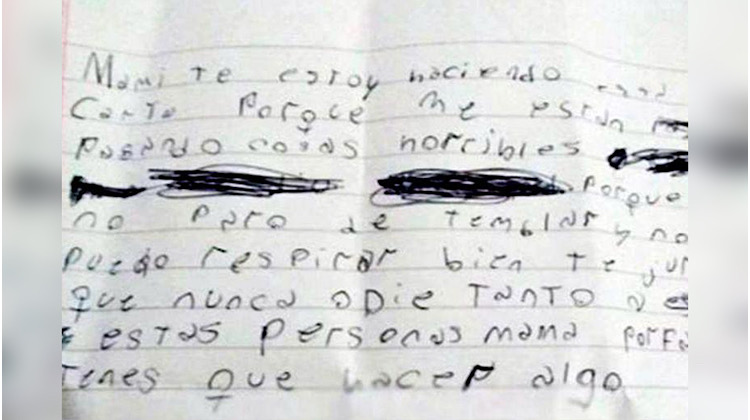 Mami te estoy haciendo esta
Carta Porque me estan
Pasando cosas horribles
Porque
no Paro de temblar y no
Puedo respirar bien te jur
que nunca odie TANTO a es
e estas personas mama porfa
Tenes que hacer algo